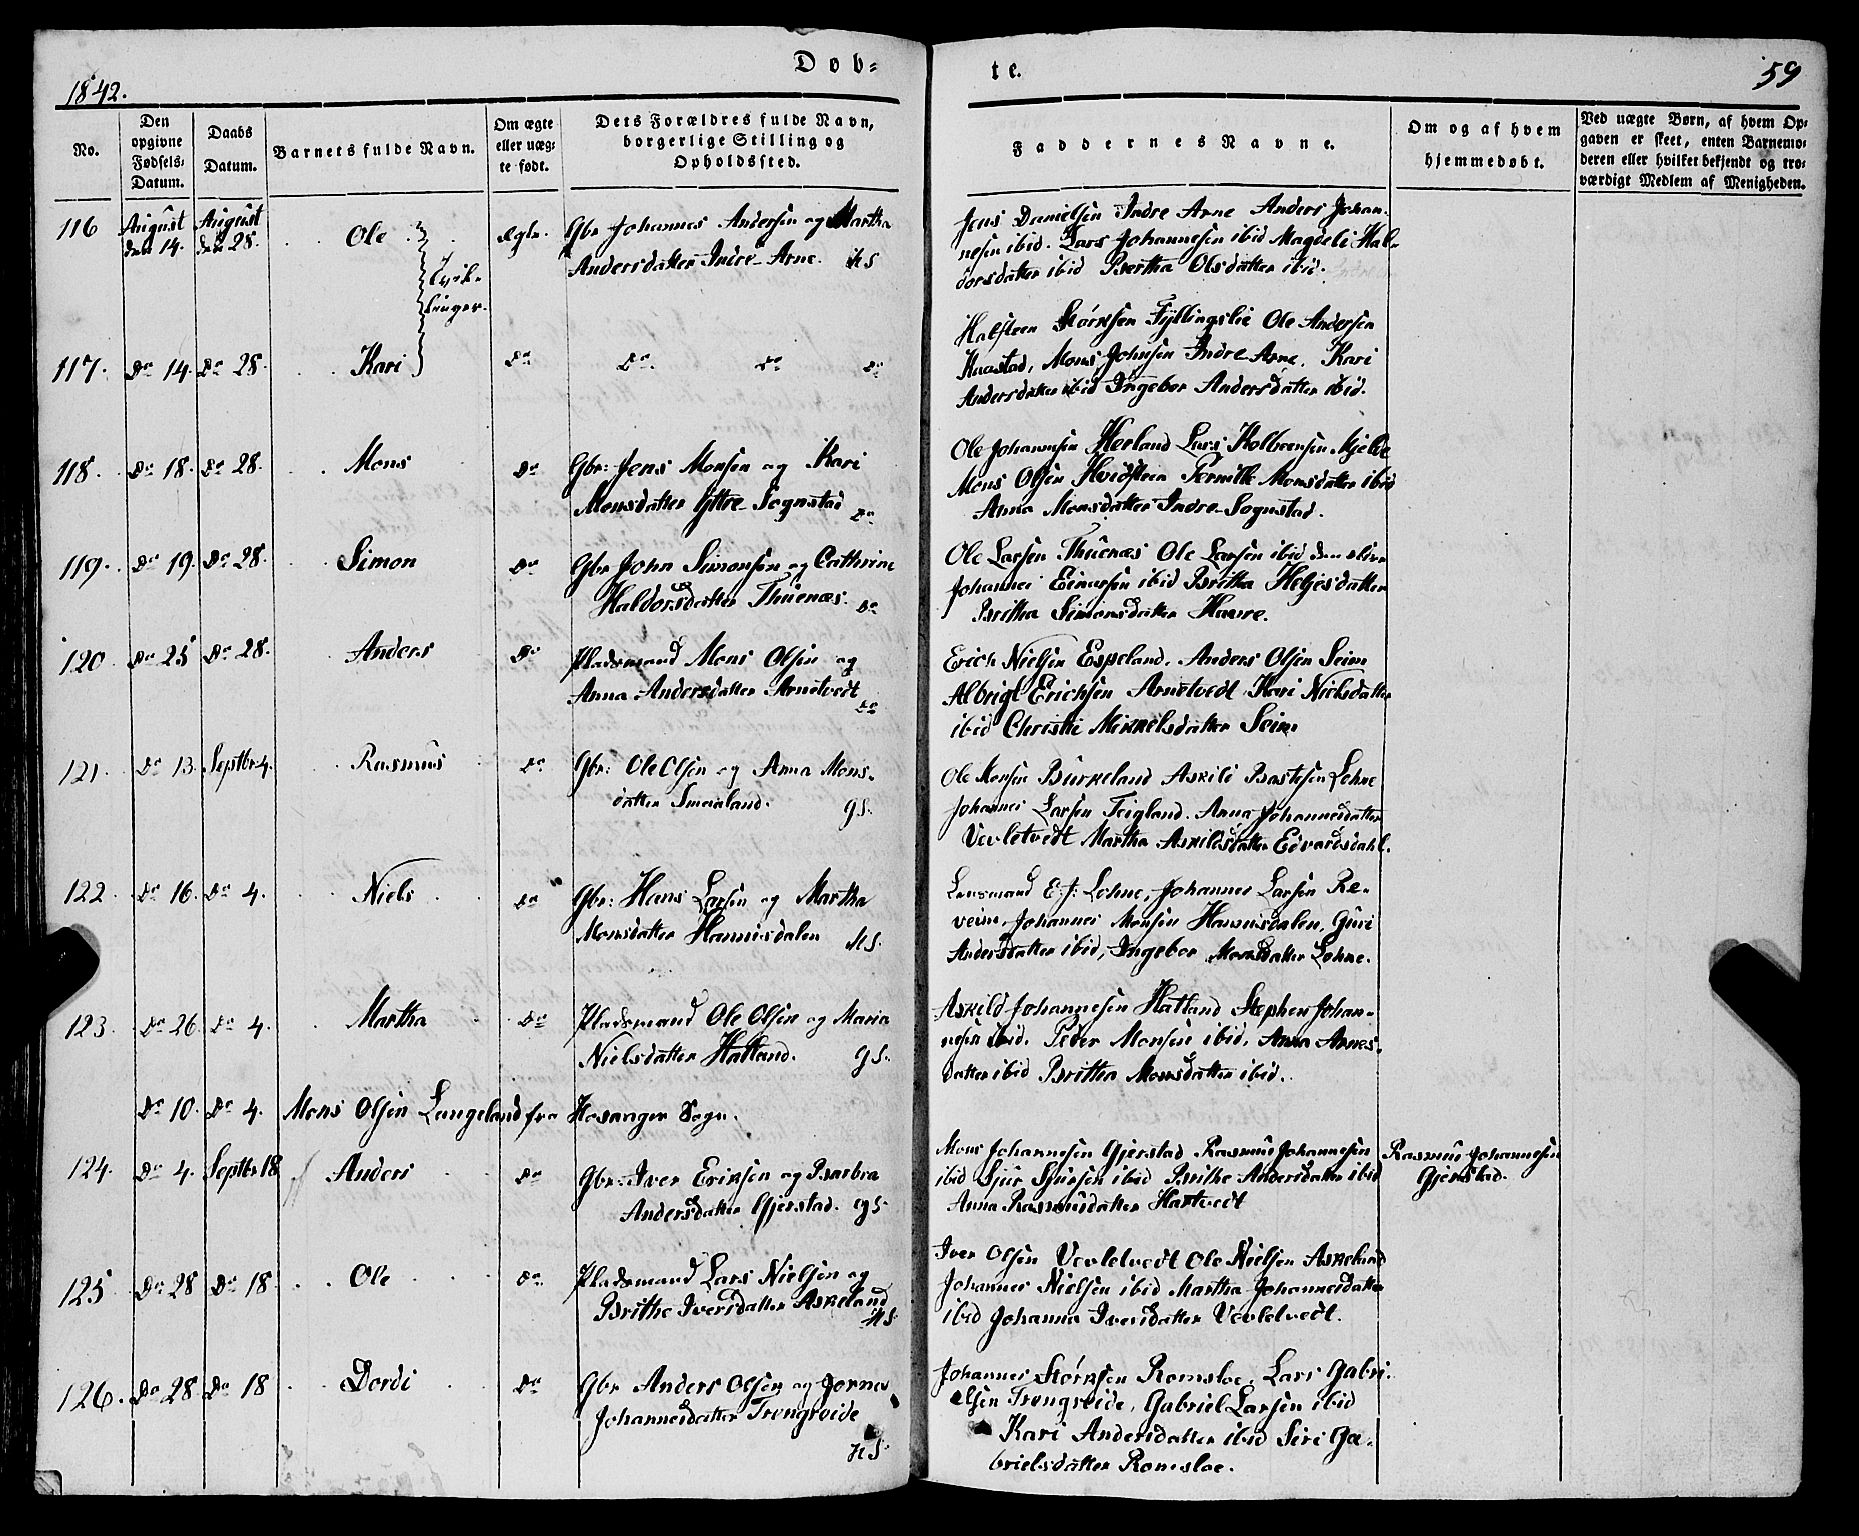 1842.
Dob=
te.
59
No.
Den opgivne Fødsels-Datum.
Daabs Datum.
Barnets fulde Navn.
Om ægte eller uæg-te født.
Dets Forældres fulde Navn, borgerlige Stilling og Opholdssted.
Faddernes Navne.
Om og af hvem hjemmedøbt.
Ved uægte Børn, af hvem Op-gaven er skeet, enten Barnemo-deren eller hvilket bekjendt og tro-værdigt Medlem af Menigheden.
116 August den 14. August den 28. Ole Tvil-linger. Ægte. Gbr Johannes Andersen og Martha
Andersdatter Indre-Arne. HS
Jens Danielsen Indre Arne Anders Johan-
nesen ibid. Lars Johannesen ibid Magdeli Hal-
dorsdatter ibid Bertha Olsdatter ibid.
117. Do 14. Do 28. Kari Do Do Do Do
Halsteen Størksen Fyllingslie Ole Andersen
Haastad, Mons Johnsen Indre Arne. Kari
Andersdatter ibid Ingebor Andersdatter ibid.
118. Do 18. Do 28. Mons Do Gbr: Jens Monsen og Kari
Monsdatter Yttre-Sognstad Do
Ole Johannsen Herland Lars Kolbeensen Mjelde
Mons Olsen Hvidsteen Pernille Monsdatter ibid
Anna Monsdatter Indre-Sognstad.
119. Do 19. Do 28. Simon Do Gbr John Simonsen og Cathrine
Haldorsdatter Thuenæs. Do
Ole Larsen Thuenæs Ole Larsen ibid den
Johannes Einarsen ibid Britha Heljesdatter
Britha Simonsdatter Haure.
120 Do 25 Do 28. Anders Do Pladsmand Mons Olsen og
Anna Andersdatter Arnetvedt Do
Erich Nielsen Espeland. Anders Olsen Seim
Albrigt Ericksen Arnetvedt Kari Nielsdatter
ibid Christi Mikkelsdatter Seim
121. Do 13. Septbr 4. Rasmus Do Gbr: Ole Olsen og Anna Mons-
datter Smaaland. GS.
Ole Monsen Burkeland Askild Bastesen Lohne
Johannes Larsen Teigland. Anna Johannesdatter
Vevletvedt Martha Askildsdatter Edvardsdahl.
122. Do 16. Do 4. Niels Do Gbr: Hans Larsen og Martha
Monsdatter Hannisdalen HS.
Lensmand E. J. Lohne, Johannes Larsen Re-
veim, Johannes Monsen Hannisdalen, Guri
Andersdatter ibid, Ingebor Monsdatter Lohne.
123. Do 26 Do 4. Martha Do Pladsmand Ole Olsen og Maria
Nielsdatter Hatland. GS.
Askild Johannesen Hatland Stephen Johan-
nesen ibid. Peder Monsen ibid. Anna Arnes-
datter ibid Britha Monsdatter ibid.
Do 10. Do 4. Mons Olsen Langeland fra Hosanger Sogn.
124. Do 4. Septbr 18 Anders Do Gbr: Iver Eriksen og Barbra
Andersdatter Gjerstad. GS.
Mons Johannesen Gjerstad Rasmus Johannesen
ibid Sjur Sjursen ibid Brithe Andersdatter ibid
Anna Rasmusdatter Hartvedt
Rasmus Johannesen
Gjerstad.
125 Do 28 Do 18 Ole Do Pladsmand Lars Nielsen og
Brithe Iversdatter Askeland HS
Iver Olsen Vevletvedt Ole Nielsen Askeland
Johannes Nielsen ibid Martha Johannesdatter
ibid Johanna Iversdatter Vevletvedt.
126. Do 28 Do 18 Dordi Do Gbr Anders Olsen og
Johannesdatter Trengreide
HS
Johannes Størksen Romsloe. Lars Gabri-
elsen Trengreide, Gabriel Larsen ibid
Kari Andersdatter ibid Siri Ga-
brielsdatter Romsloe.